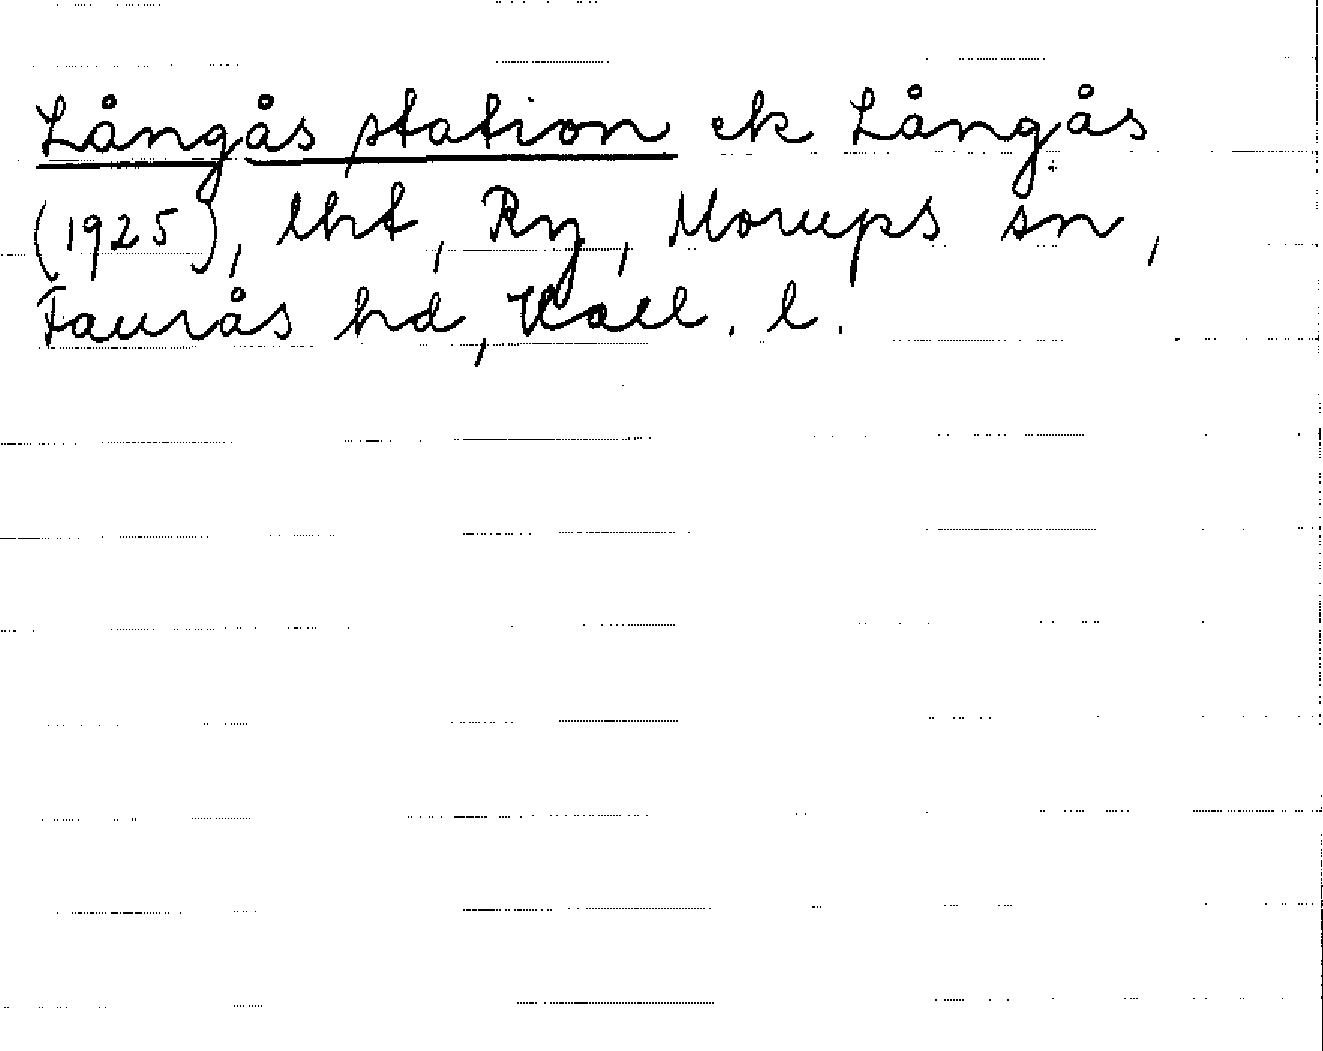 Långås station ek Långås
(1925), lht, Ry, Morups sn,
Faurås hd, Hall. l.